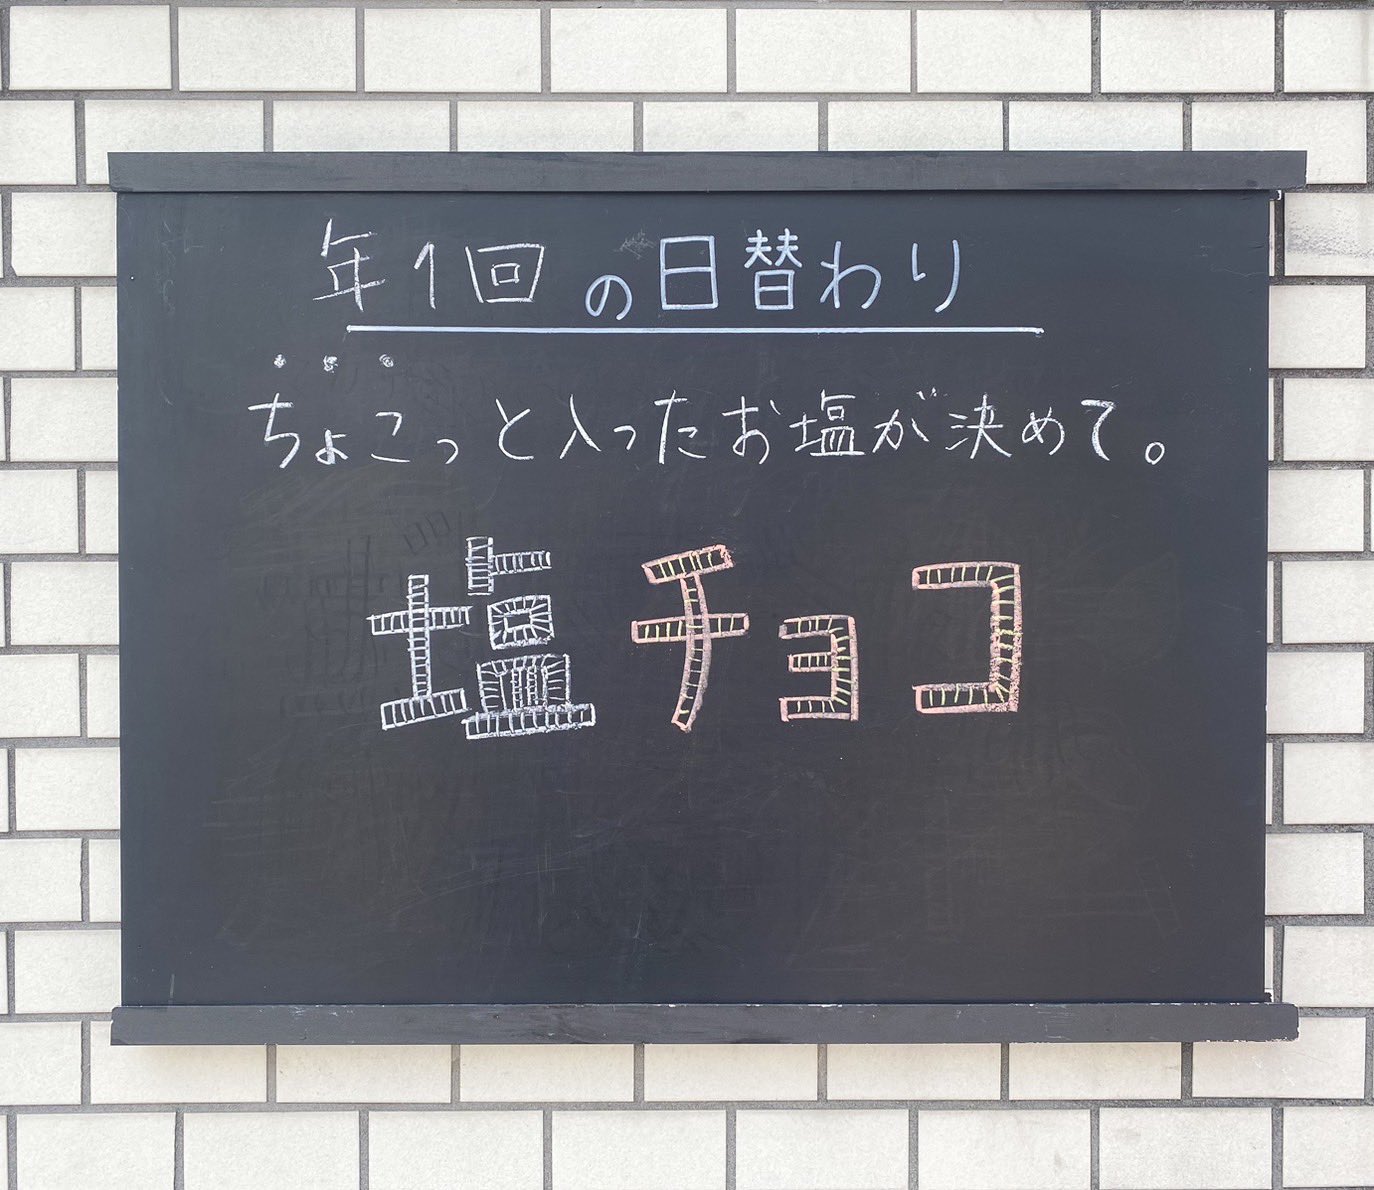 年1回の日替わり
ちょこっと入ったお塩が決めて。
塩チョコ